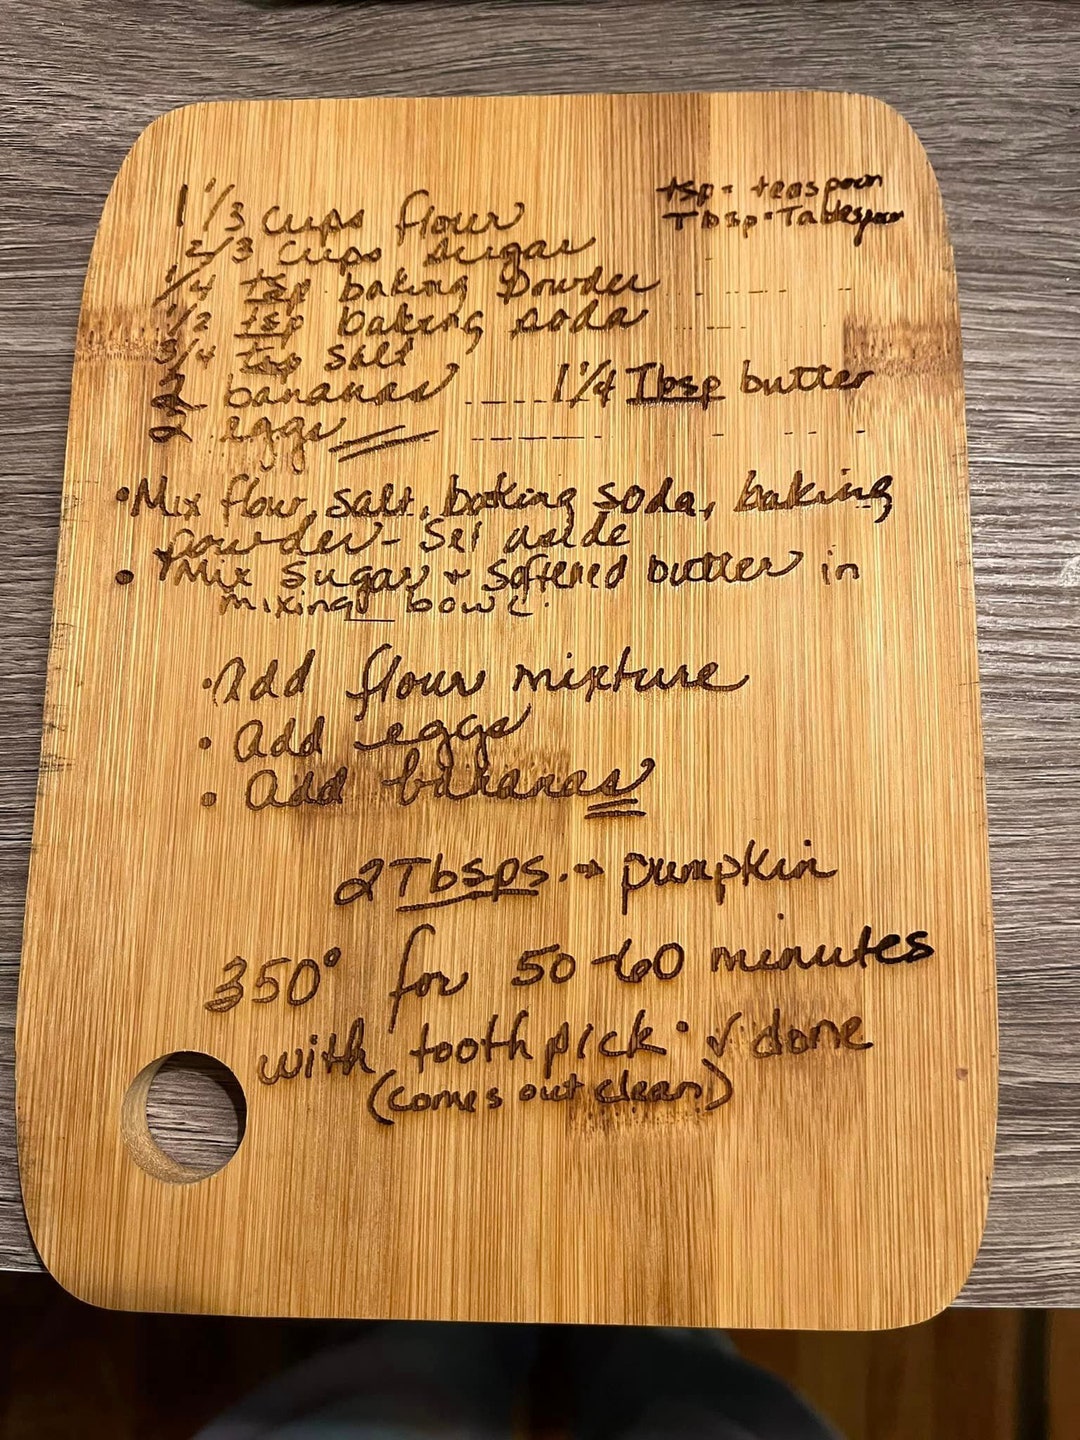 tsp = teaspoon
Tbsp = Tablespoon
1 1/3 cups flour
2/3 cups sugar
1/4 tsp baking powder
1/2 tsp baking soda
3/4 tsp salt
2 bananas 1 1/4 Tbsp butter
2 eggs
• Mix flour, salt, baking soda, baking
powder - Set aside
• Mix sugar + softened butter in
mixing bowl.
• Add flour mixture
• add eggs
• add bananas
2 Tbsps. → pumpkin
350° for 50-60 minutes
with toothpick • ✓ done
(comes out clean)